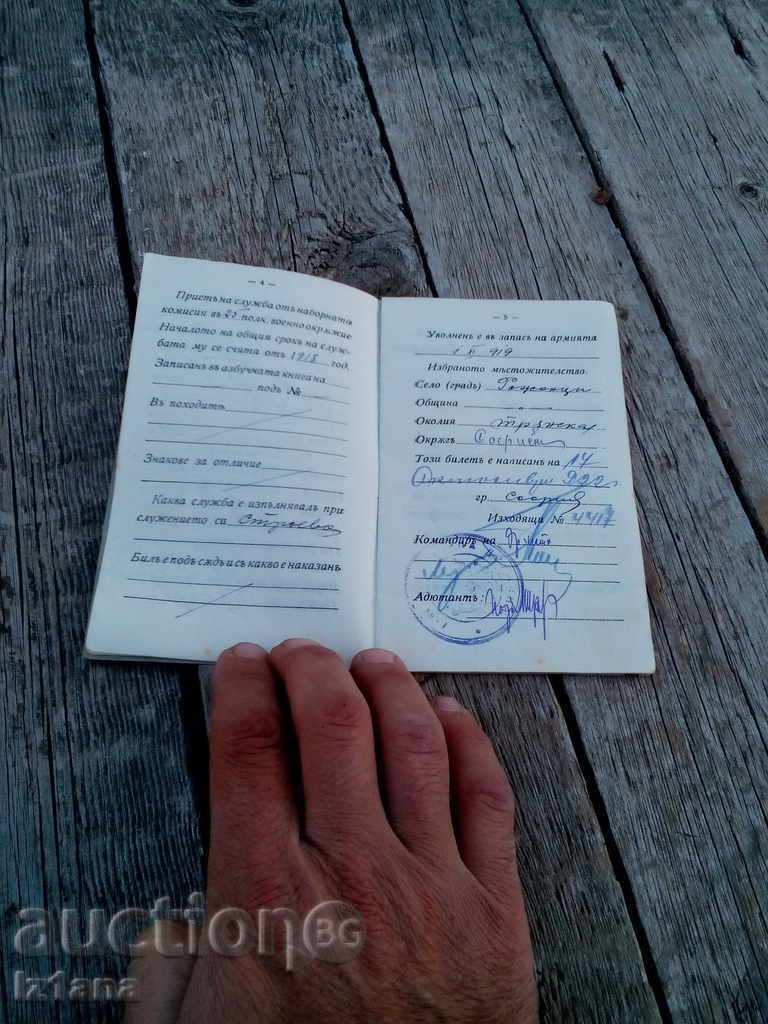 — 4 —
Приетъ на служба отъ наборната
комисия въ 25 полк. военно окрѫжие
Началото на общия срокъ на служ-
бата му се счита отъ 1918 год.
Записанъ въ азбучната книга на
подъ №
Въ походитѣ
Знакове за отличие
Каква служба е изпълнявалъ при
служението си Строева
Билъ е подъ сѫдъ и съ какво е наказанъ
— 5 —
Уволненъ е въ запасъ на армията
919
Избраното мѣстожителство.
Село (градъ)
Община „
Околия Трънска
Окрѫгъ Софийски
Този билетъ е написанъ на 17
Октомврий 922 г.
гр. София
Изходящи №
Командиръ на
Адютантъ:
auctionBG
Iz1ana